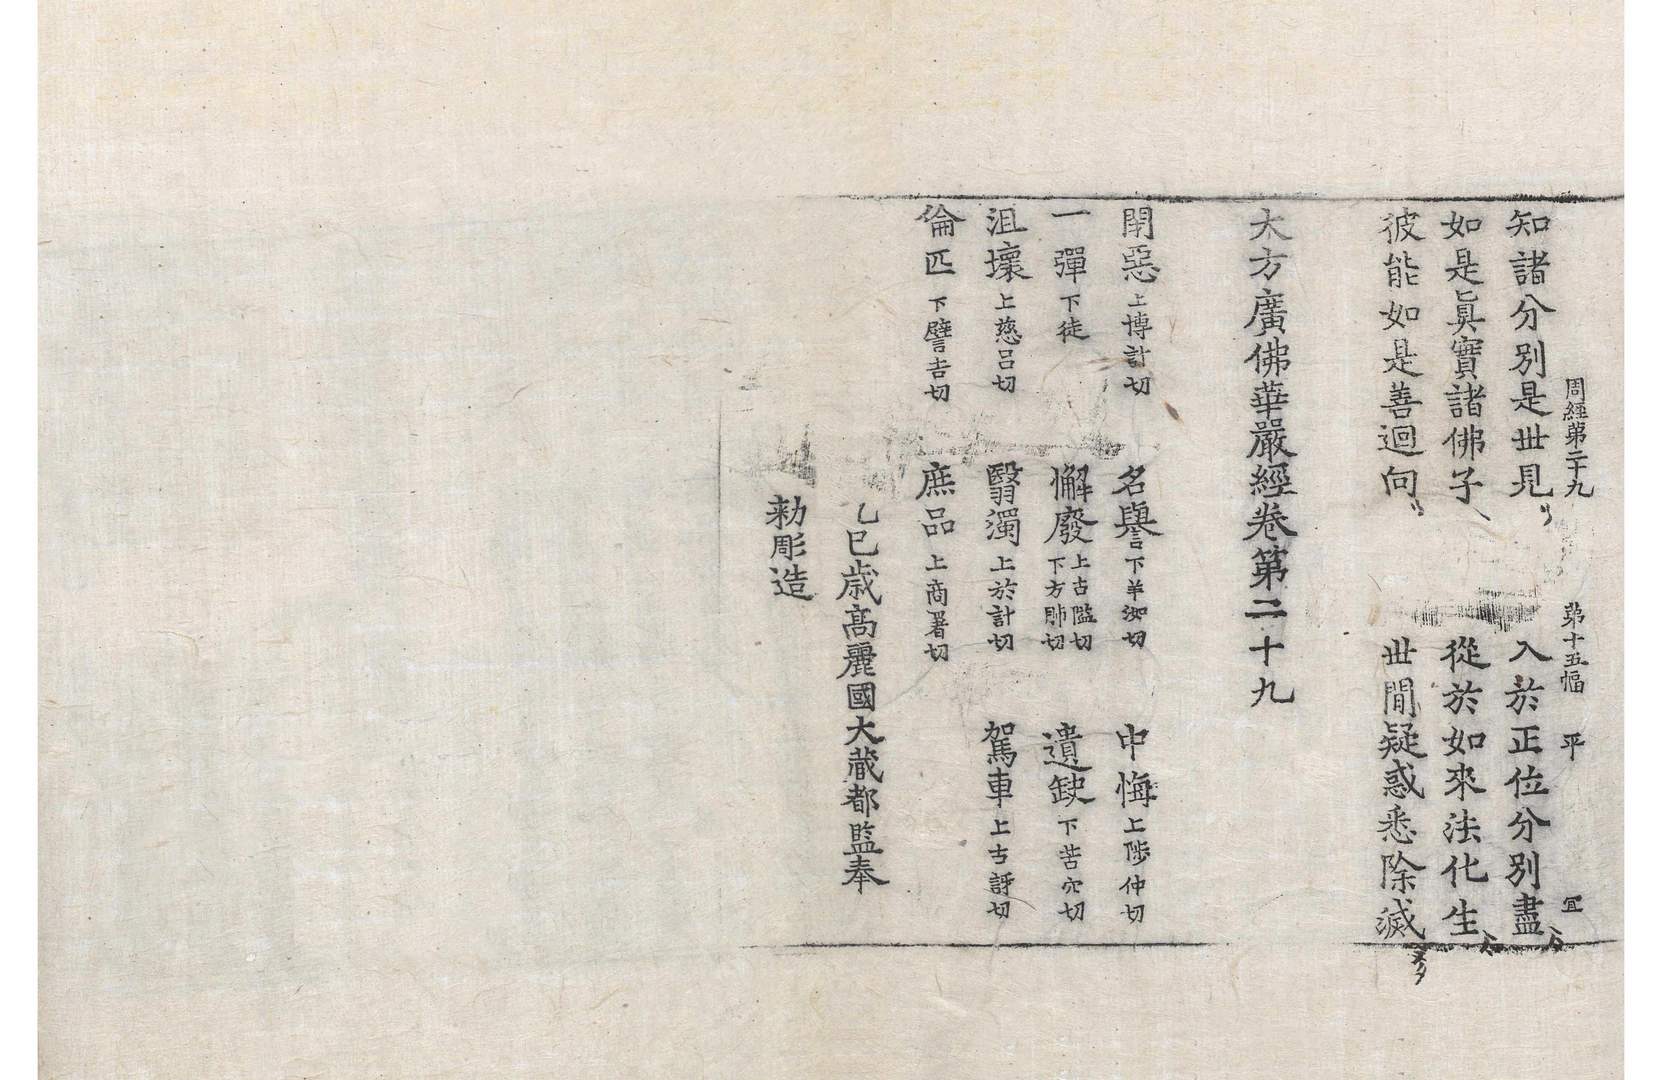 周經第二十九 第十五幅 平 冝
知諸分別是丗見 入於正位分別盡
如是眞實諸佛子 從於如來法化生
彼能如是善迴向 丗閒疑惑悉除滅
大方廣佛華嚴經卷第二十九
閇惡上博計切 名譽下羊洳切 中悔上陟仲切
一彈下徒 懈廢上古隘切下方肺切 遺缺下苦穴切
沮壞上慈呂切 翳濁上於計切 駕車上古訝切
倫匹下譬吉切 庶品上商署切
乙巳歲高麗國大藏都監奉
勑彫造